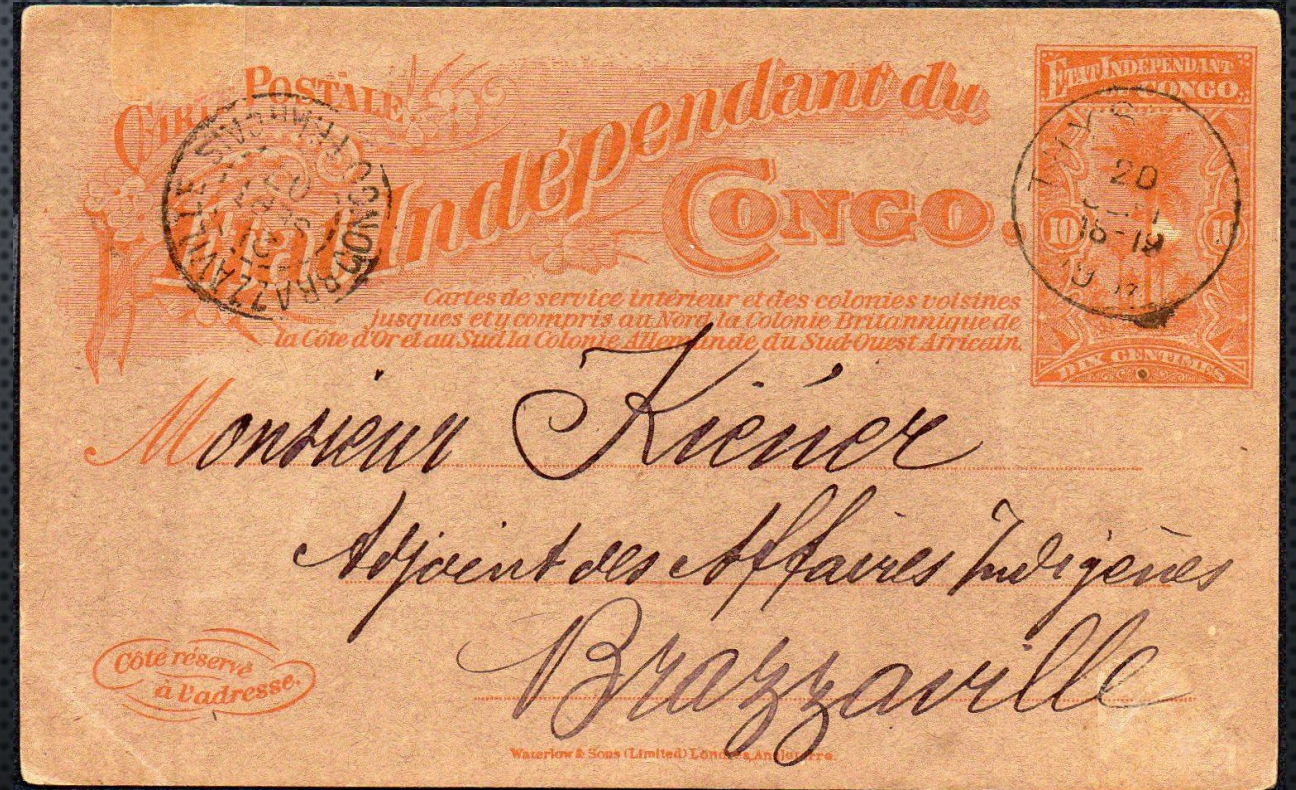 CARTE POSTALE
État Indépendant du
CONGO.
ETAT INDÉPENDANT
DU CONGO.
10 10
DIX CENTIMES
20
18-19
BRAZZAVILLE
CONGO FRANCAIS
Cartes de service intérieur et des colonies voisines
jusques et y compris au Nord la Colonie Britannique de
la Côte d'Or et au Sud la Colonie Allemande du Sud-Ouest Africain.
Monsieur Kiéner
Adjoint des Affaires Indigènes
Brazzaville
Côté réservé
à l'adresse.
Waterlow & Sons (Limited) Londres, Angleterre.